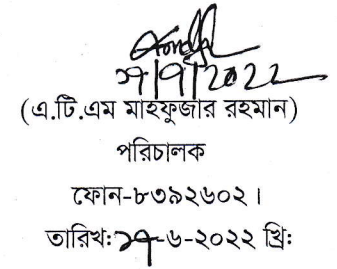 (এ.টি.এম মাহফুজার রহমান)
পরিচালক
ফোন-৮৩৯২৬০২।
তারিখ: -৬-২০২২ খ্রি: